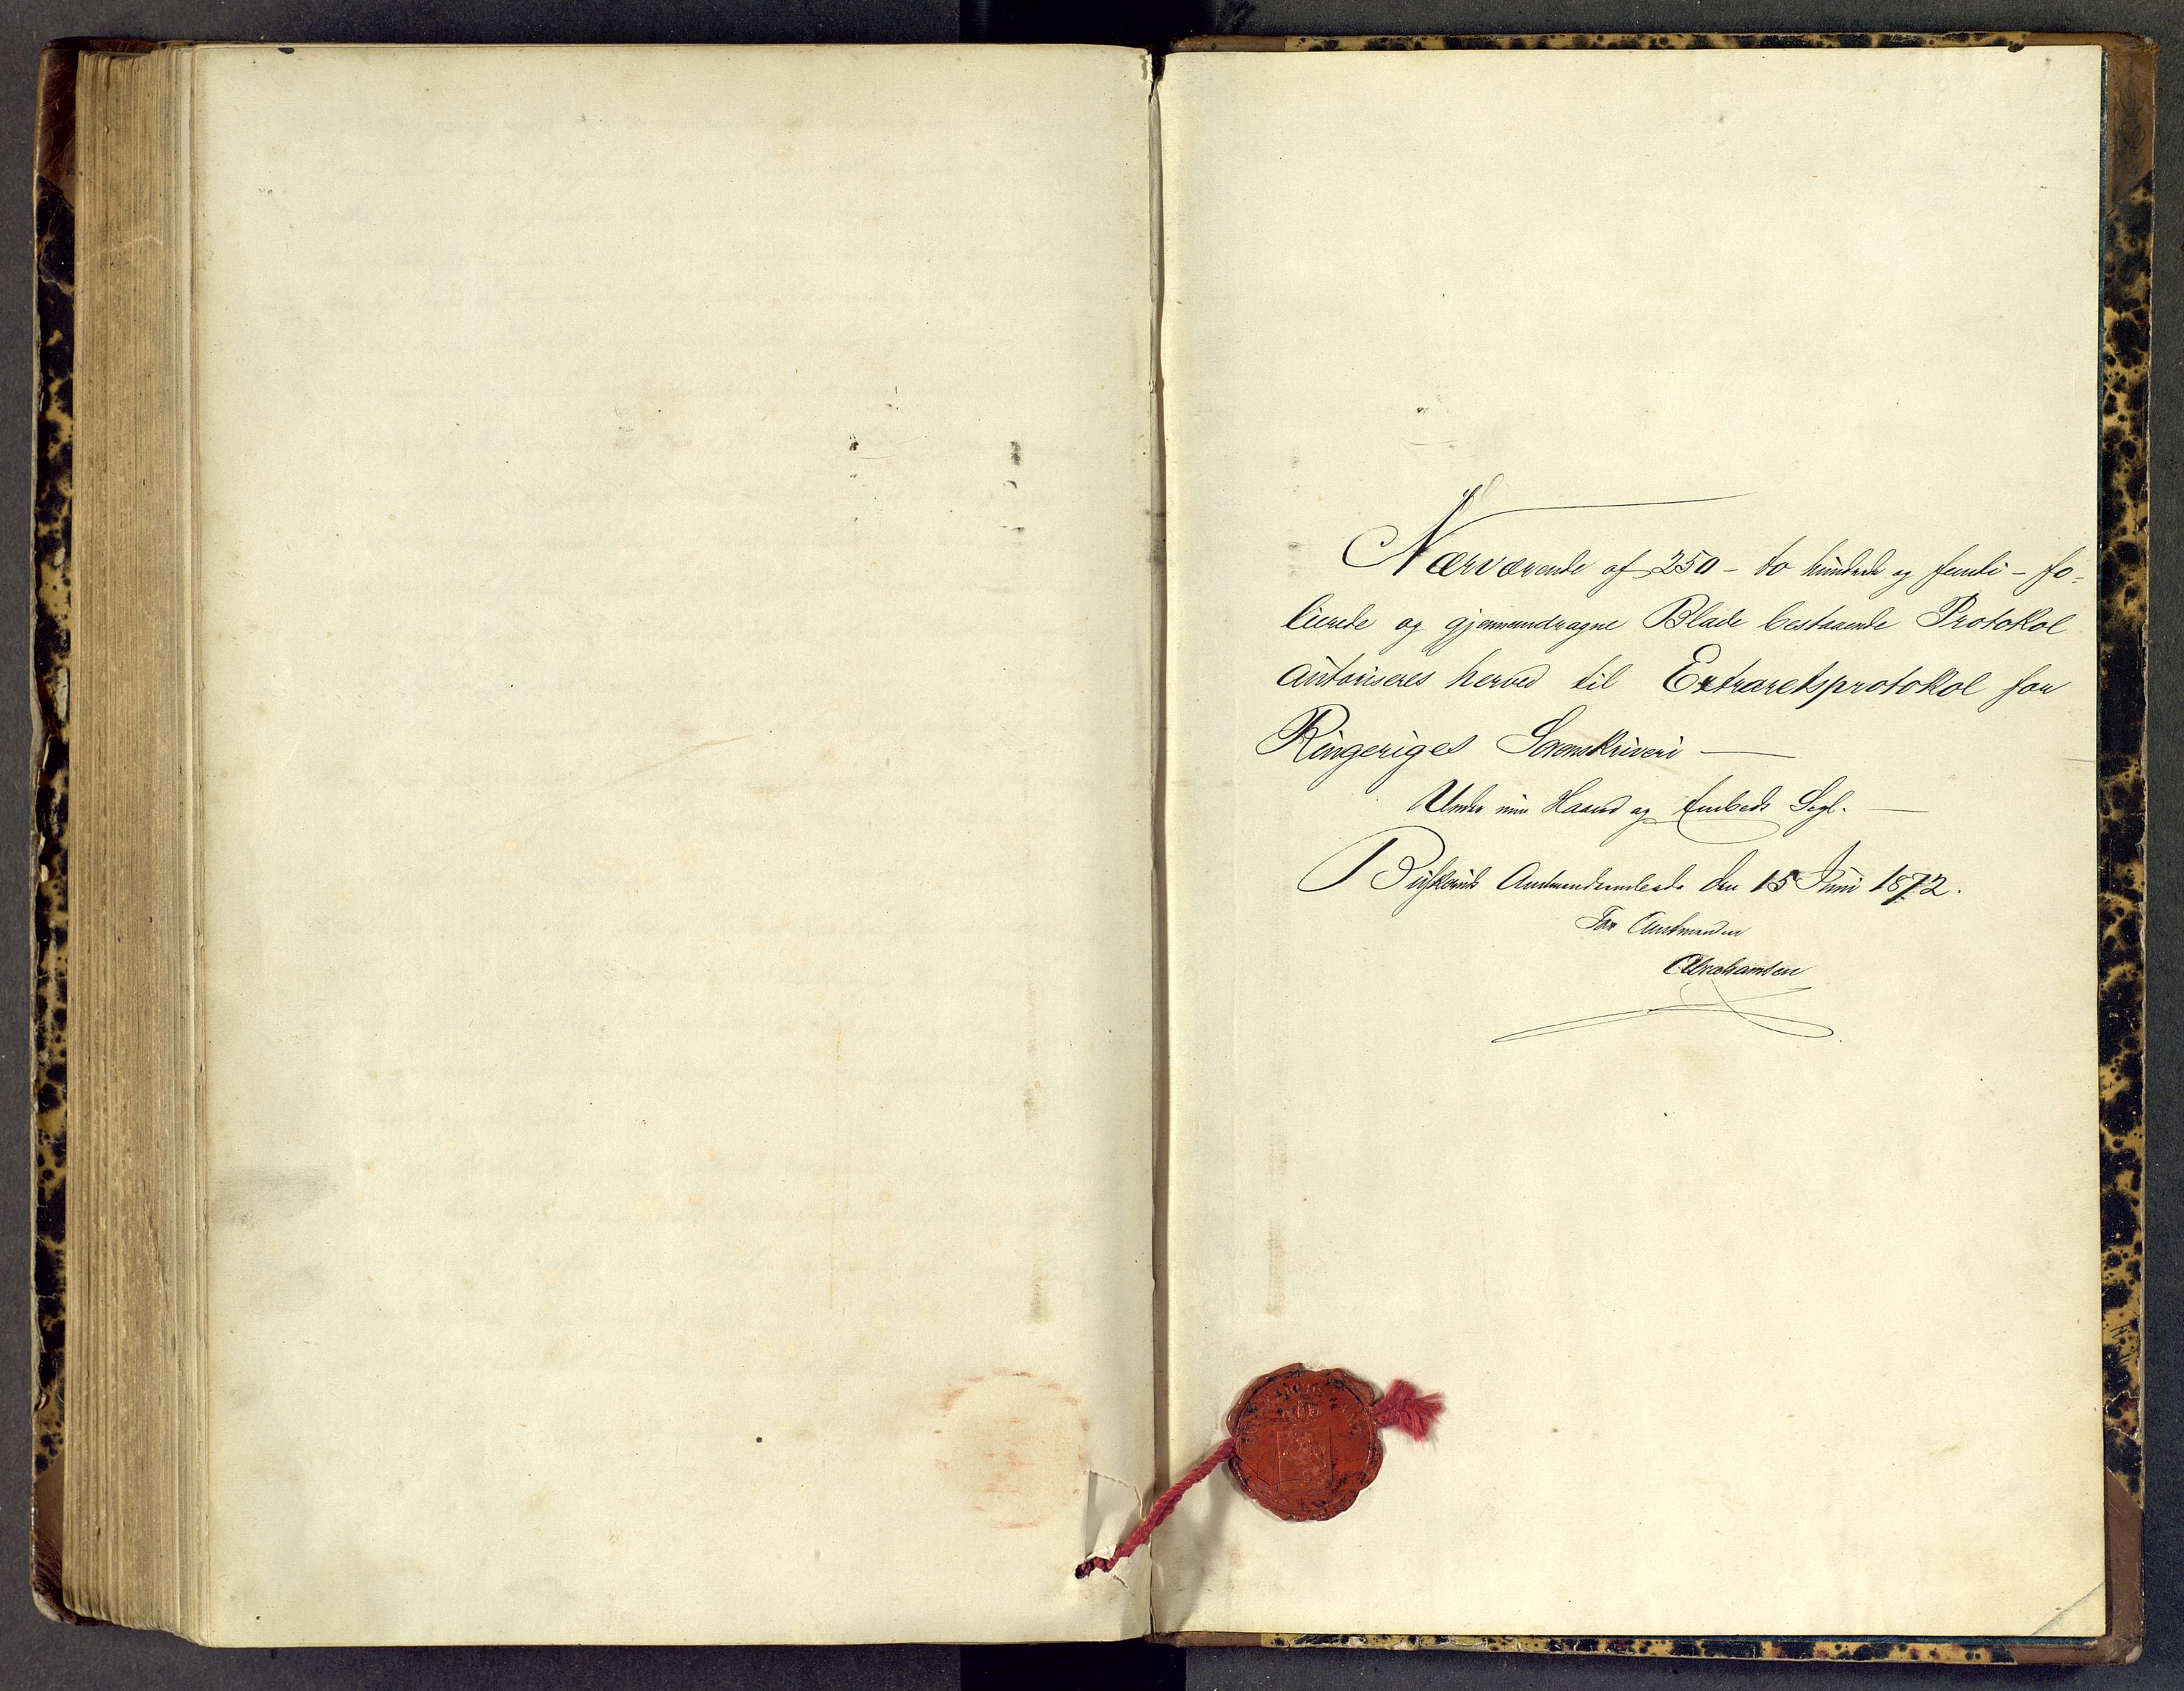 Nærværende af 250 - to hundrede og femti - fo-
lierede og gjennemdragne Blade bestaaende Protokol
autoriseres herved til Extraretsprotokol for
Ringeriges Sorenskriveri —
Under min Haand og Embeds Segl. —
Buskeruds Amtmandembede den 15 Juni 1872.
For Amtmanden
Abrahamsen